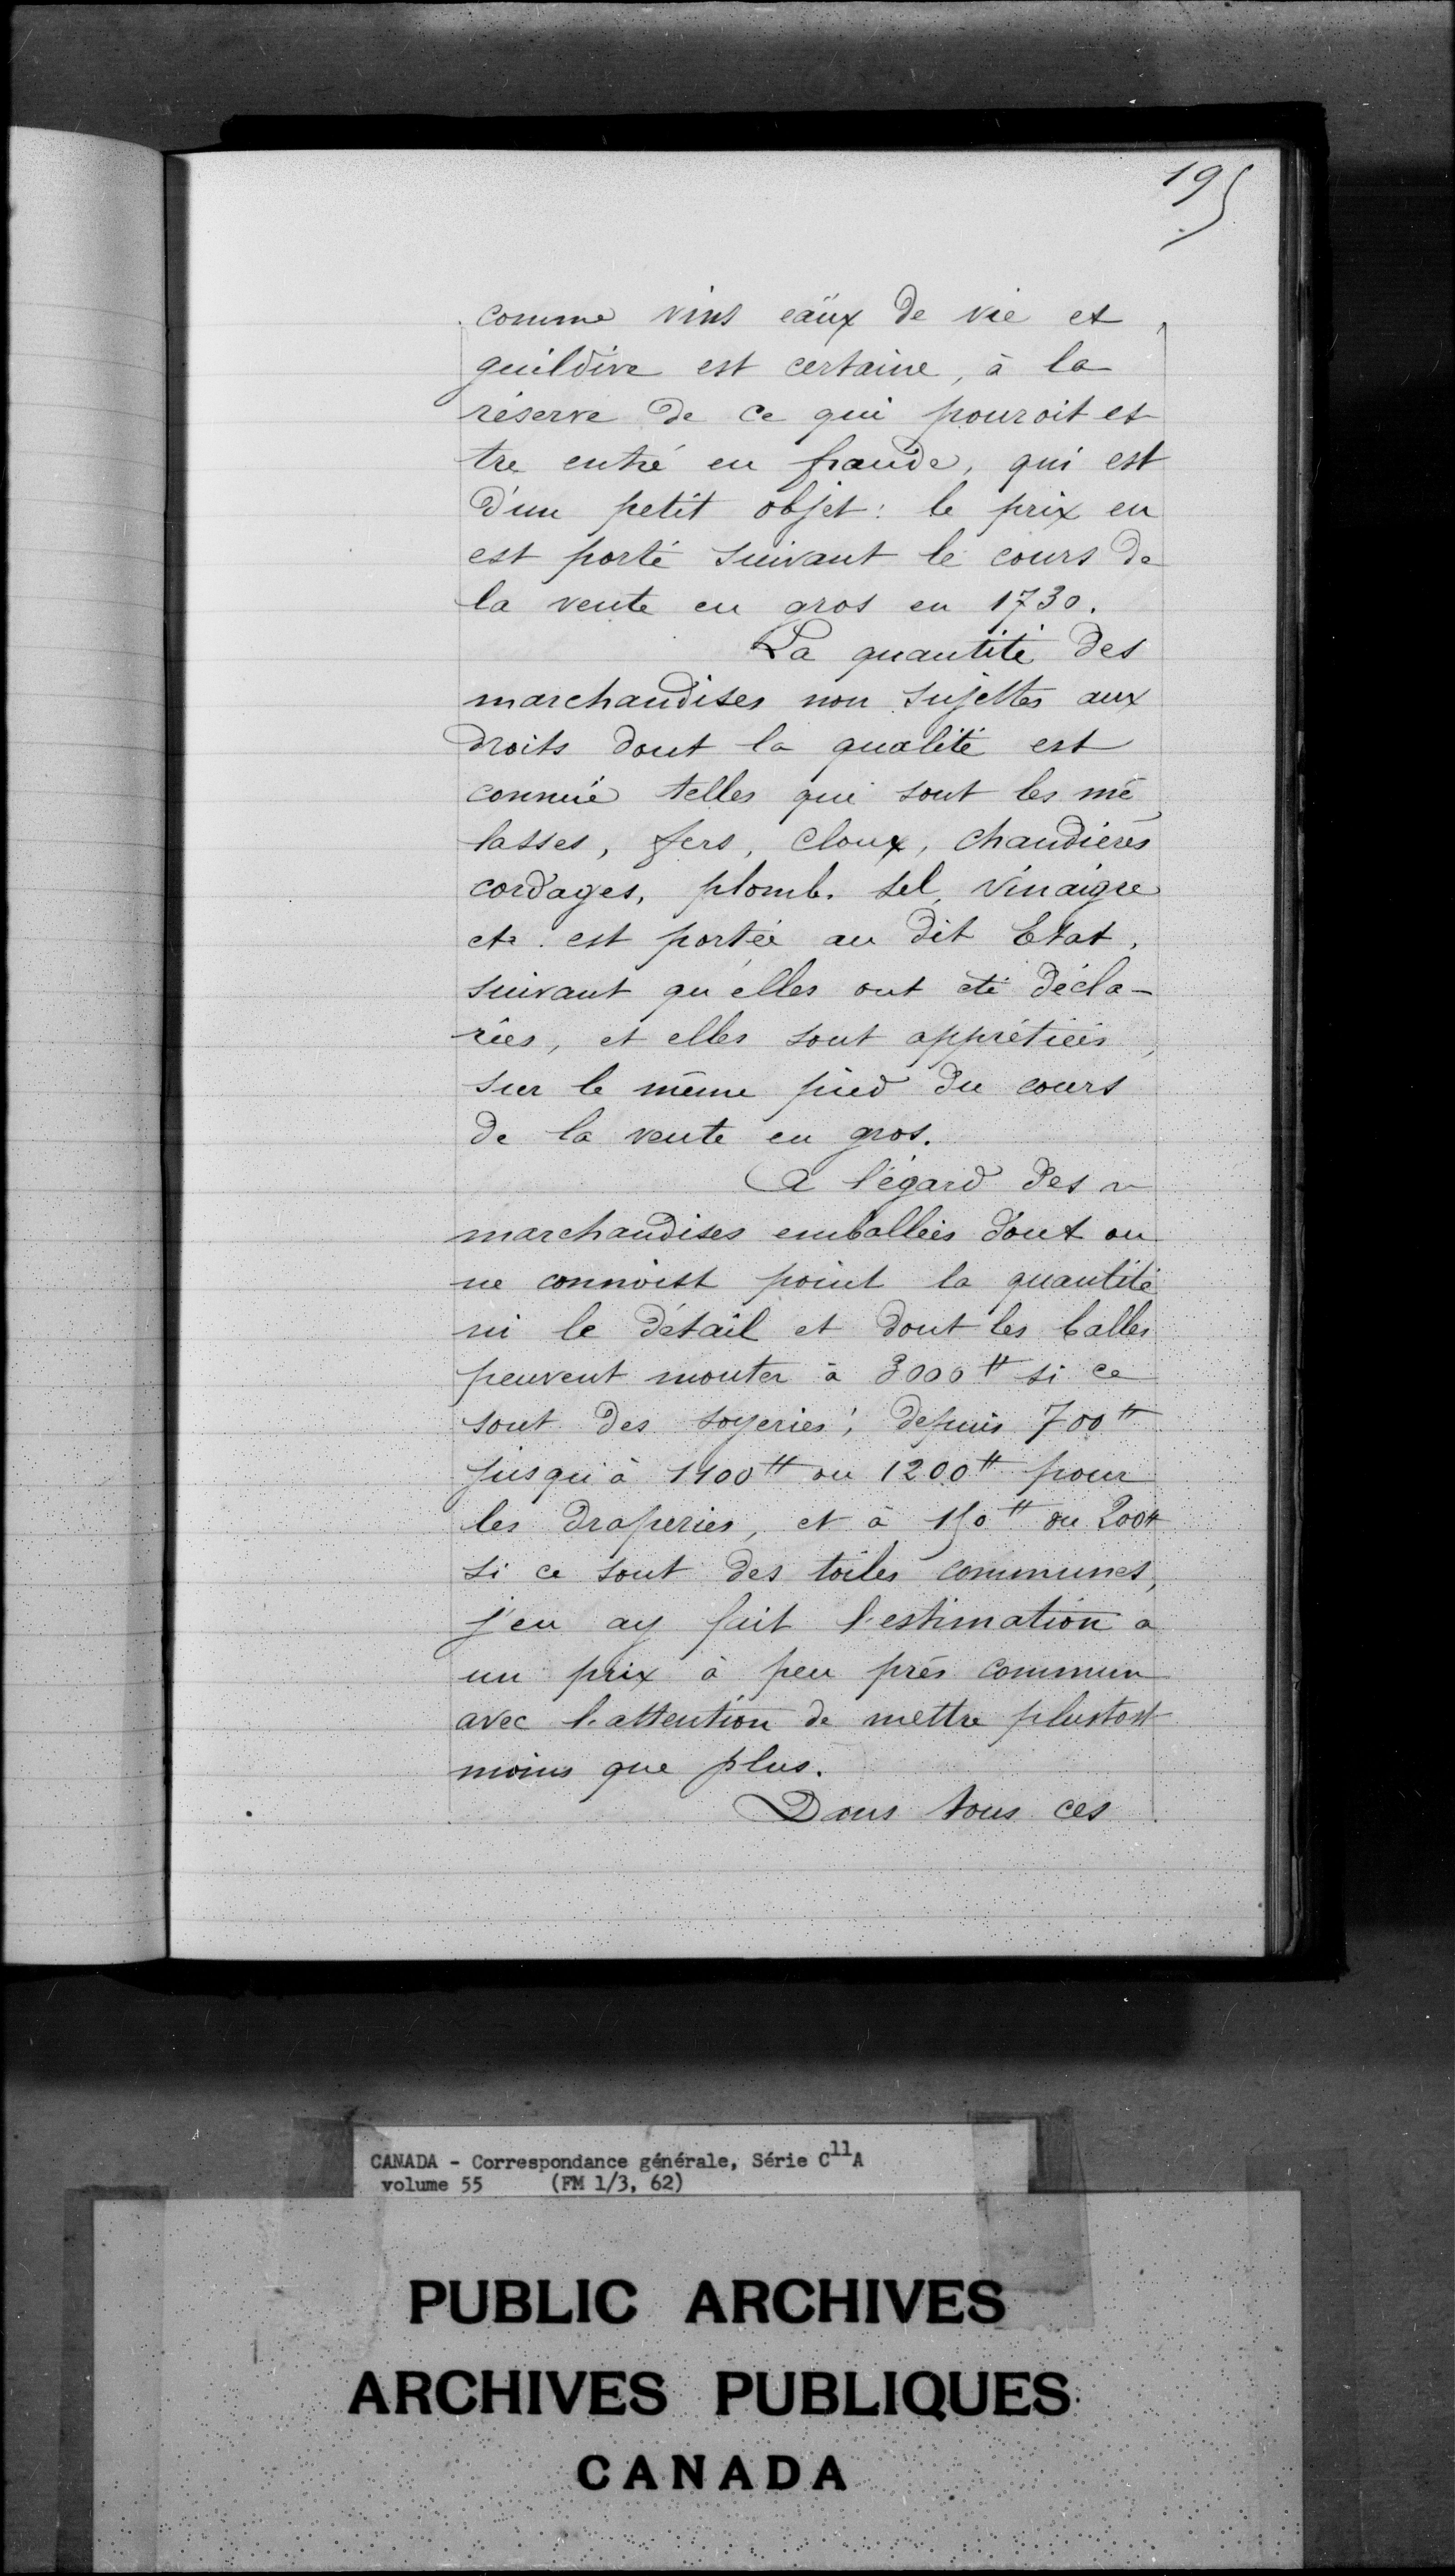 195
comme vins eaux de vie et
guildive est certaine, à la
réserve de ce qui pouroit es
tre entré en fraude, qui est
d'un petit objet: le prix en
est porté suivant le cours de
la vente en gros en 1730.
La quantité des
marchandises non sujettes aux
droits dont la qualité est
connüe telles que sont les mé
lasses, fers, cloux, chaudières
cordages, plomb. sel, vinaigre
etc. est portée au dit Etat,
suivant qu'elles ont été décla-
rées, et elles sont apprétiées,
sur le même pied du cours
de la vente en gros.
A l'égard des
marchandises emballées dont on
ne connoist point la quantité
ni le détail et dont les balles
peuvent monter à 3000 ₶ si ce
sont des soyeries; depuis 700 ₶
jusqu'à 1100 ₶ ou 1200 ₶ pour
les draperies, et à 150 ₶ ou 200 ₶
si ce sont des toiles communes,
j'en ay fait l'estimation a
un prix à peu près commun
avec l'attention de mettre plustost
moins que plus.
Dans tous ces
CANADA - Correspondance générale, Série C11A
volume 55 (FM 1/3, 62)
PUBLIC ARCHIVES
ARCHIVES PUBLIQUES
CANADA